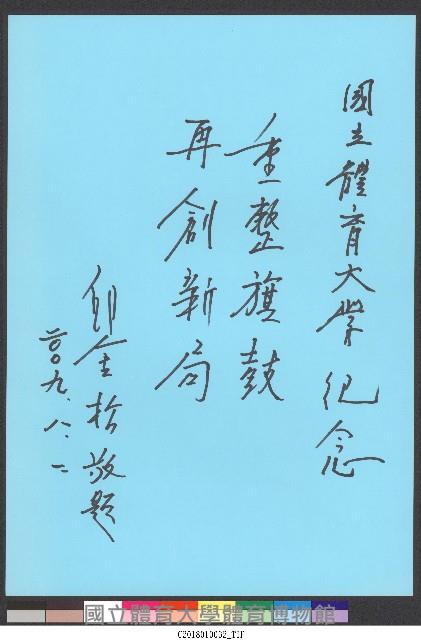 國立體育大學 紀念
重整旗鼓
再創新局
邱金松敬題
二〇〇九、八、二
國立體育大學體育博物館
C2018010032_TIF